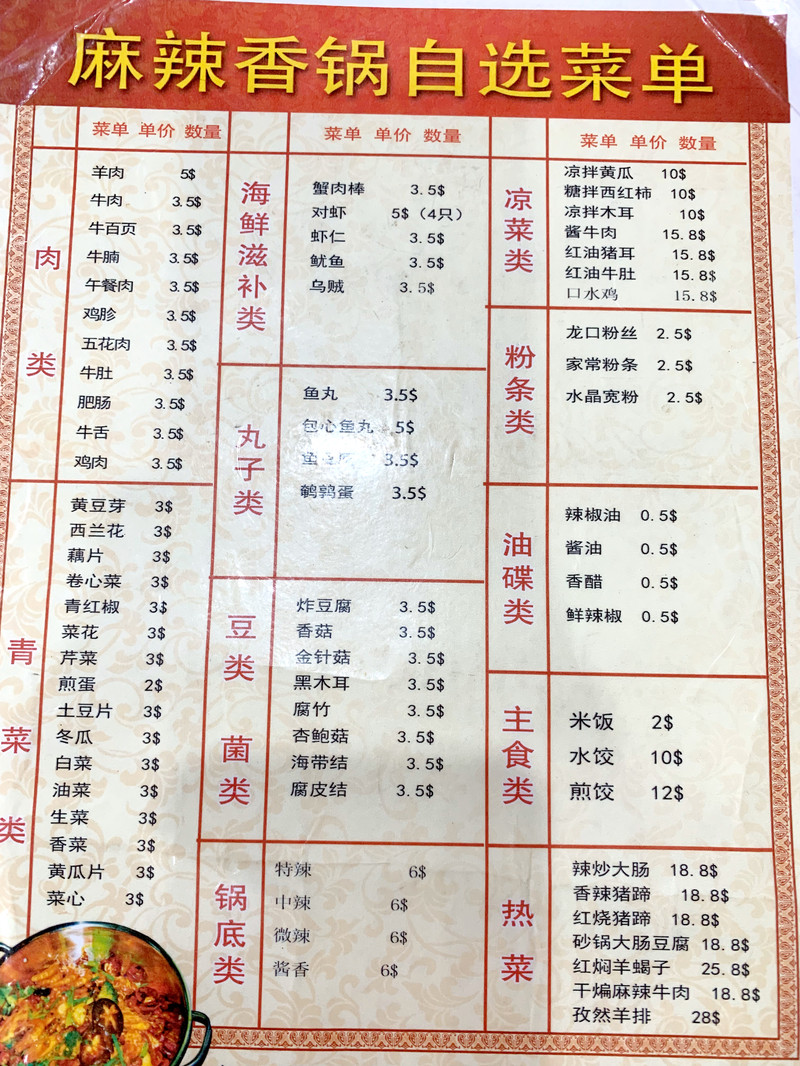 麻辣香锅自选菜单
菜单 单价 数量
肉类
羊肉 5$
牛肉 3.5$
牛百页 3.5$
牛腩 3.5$
午餐肉 3.5$
鸡胗 3.5$
五花肉 3.5$
牛肚 3.5$
肥肠 3.5$
牛舌 3.5$
鸡肉 3.5$
青菜类
黄豆芽 3$
西兰花 3$
藕片 3$
卷心菜 3$
青红椒 3$
菜花 3$
芹菜 3$
煎蛋 2$
土豆片 3$
冬瓜 3$
白菜 3$
油菜 3$
生菜 3$
香菜 3$
黄瓜片 3$
菜心 3$
菜单 单价 数量
海鲜滋补类
蟹肉棒 3.5$
对虾 5$（4只）
虾仁 3.5$
鱿鱼 3.5$
乌贼 3.5$
丸子类
鱼丸 3.5$
包心鱼丸 5$
鱼 3.5$
鹌鹑蛋 3.5$
豆类 菌类
炸豆腐 3.5$
香菇 3.5$
金针菇 3.5$
黑木耳 3.5$
腐竹 3.5$
杏鲍菇 3.5$
海带结 3.5$
腐皮结 3.5$
锅底类
特辣 6$
中辣 6$
微辣 6$
酱香 6$
菜单 单价 数量
凉菜类
凉拌黄瓜 10$
糖拌西红柿 10$
凉拌木耳 10$
酱牛肉 15.8$
红油猪耳 15.8$
红油牛肚 15.8$
口水鸡 15.8$
粉条类
龙口粉丝 2.5$
家常粉条 2.5$
水晶宽粉 2.5$
油碟类
辣椒油 0.5$
酱油 0.5$
香醋 0.5$
鲜辣椒 0.5$
主食类
米饭 2$
水饺 10$
煎饺 12$
热菜
辣炒大肠 18.8$
香辣猪蹄 18.8$
红烧猪蹄 18.8$
砂锅大肠豆腐 18.8$
红焖羊蝎子 25.8$
干煸麻辣牛肉 18.8$
孜然羊排 28$